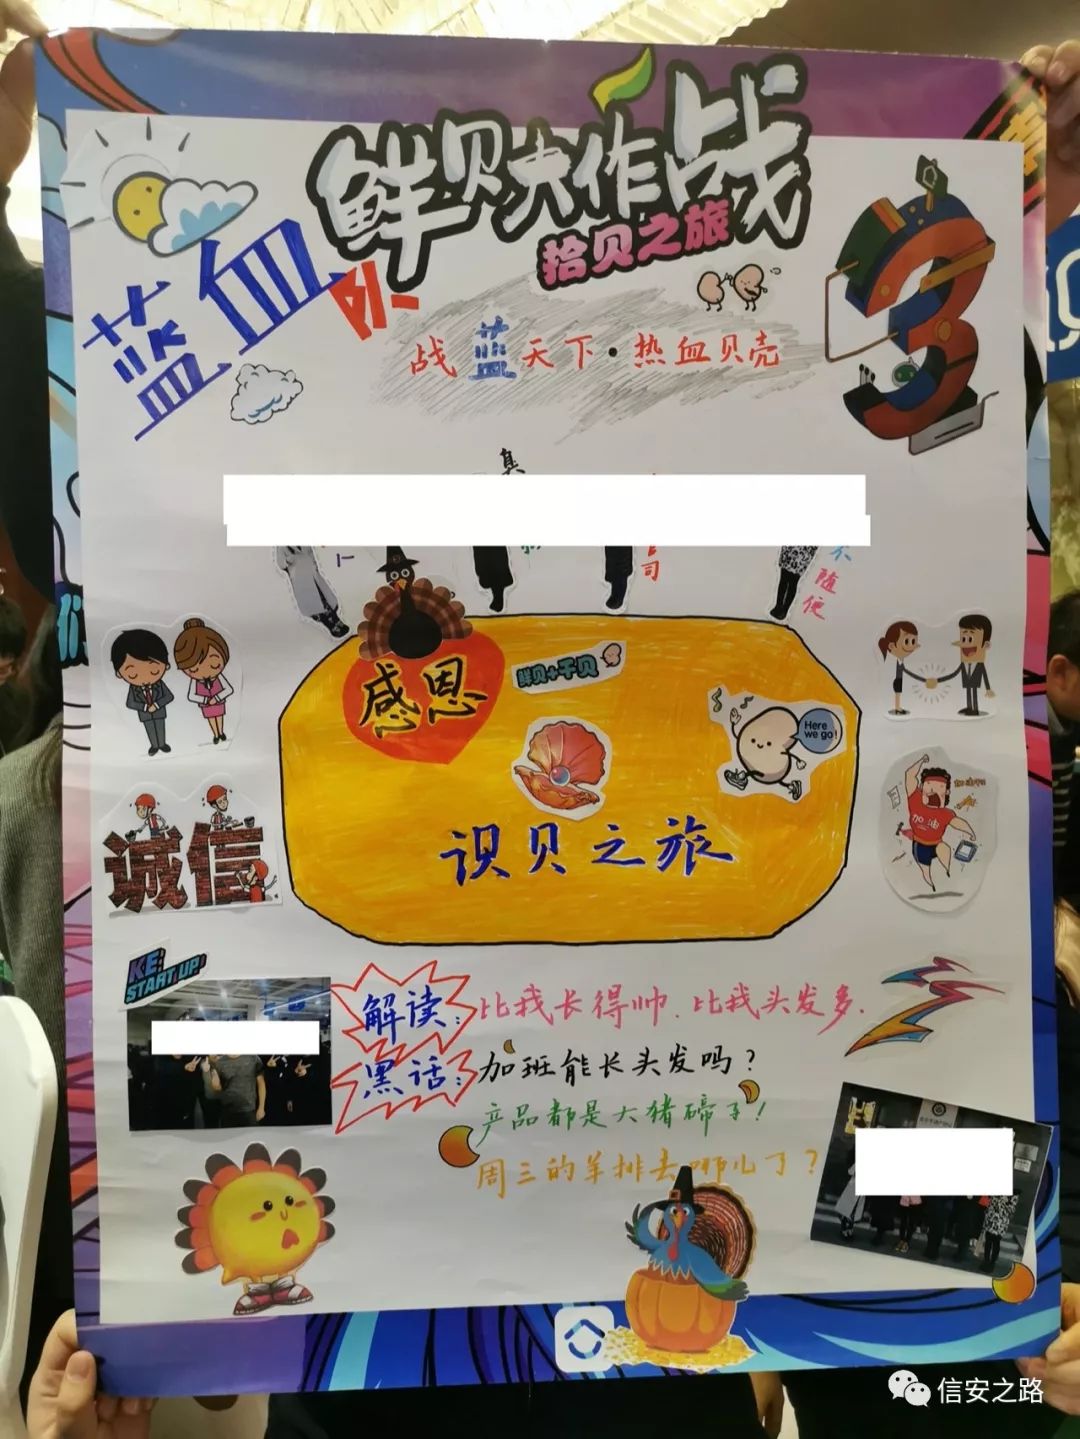 鲜贝大作战
拾贝之旅
3
蓝血
队
战蓝天下·热血贝壳
臭
司
不随便
感恩
鲜贝+干贝
Here we go!
识贝之旅
诚信
加油
KE:
START UP!
解读:
黑话:
比我长得帅、比我头发多.
加班能长头发吗?
产品都是大猪蹄子!
周三的羊排去哪儿了?
信安之路